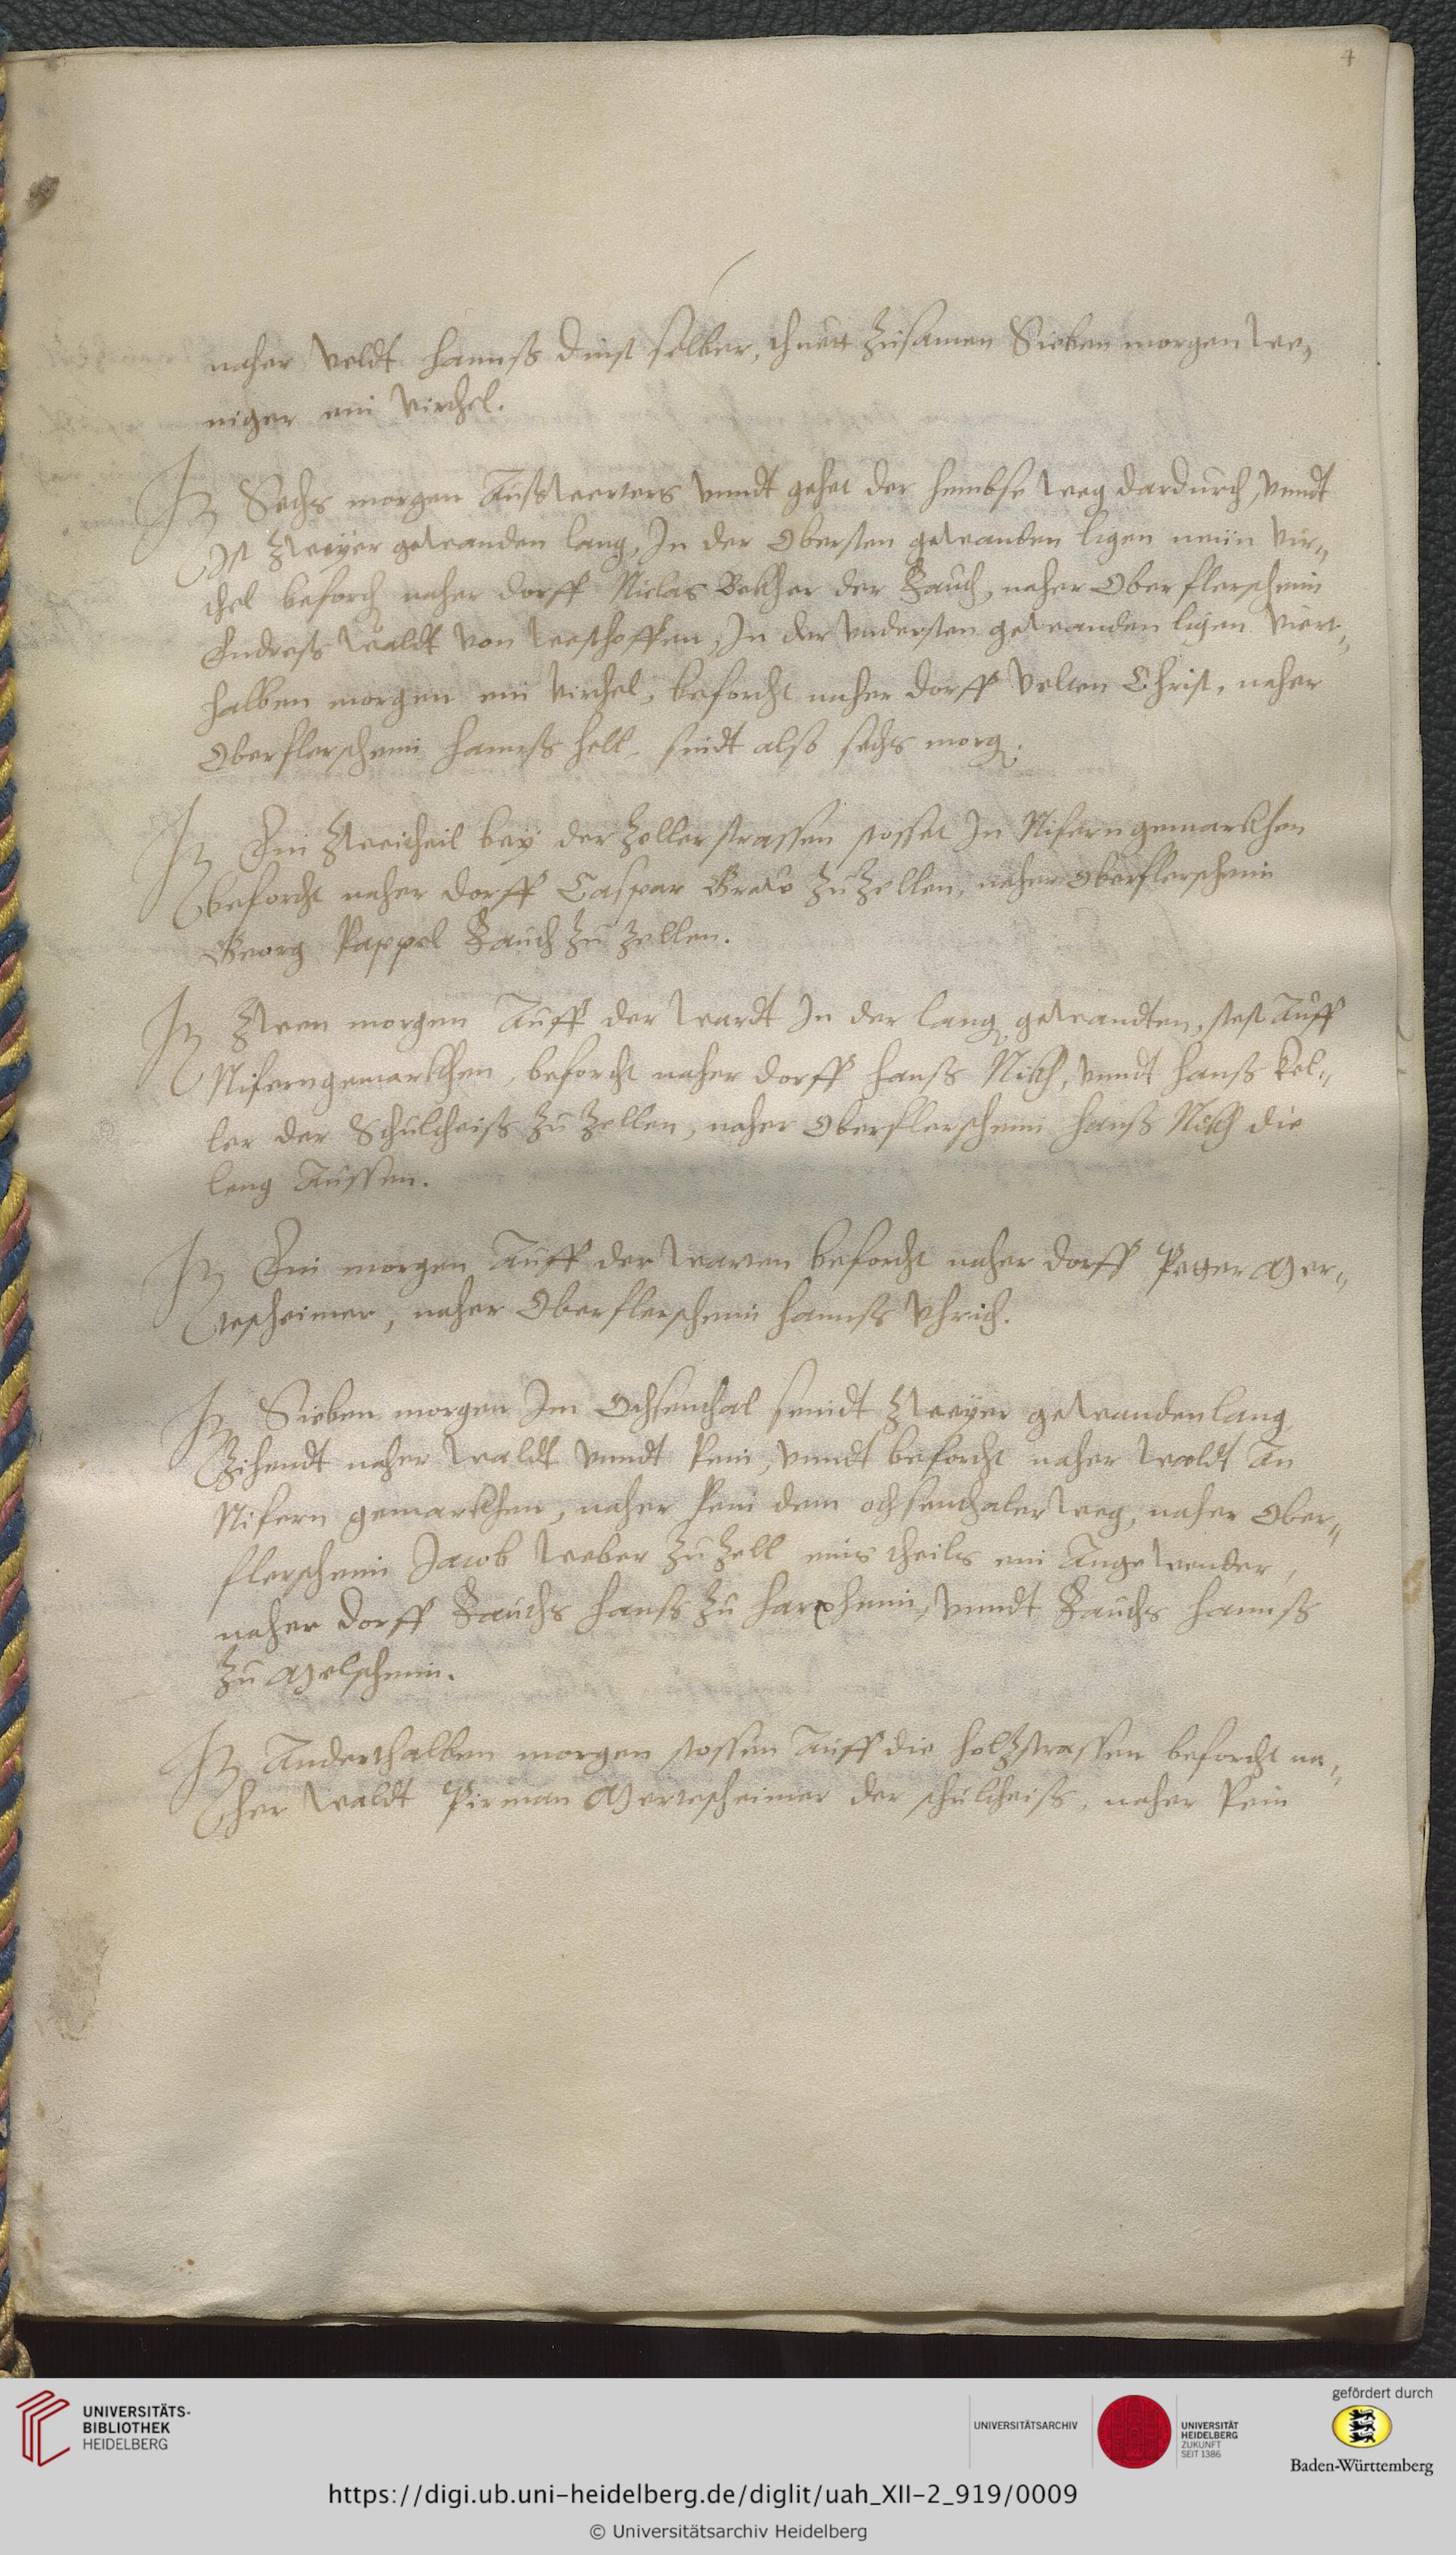 4
naher Veldt Hannß Dinst selber, thuett Zusamen Sieben morgen we„
niger ein Virthel.
It Sechs morgen Außwerters vnndt gehet der weg dardurch, vnndt
Ist Zweÿer gewanden lang, In der Obersten gewanden ligen neün Vir„
thel beforch naher dorff Niclas Bekher der Fauth, naher Oberflersheim
Endreß Waldt von westhoffen, In der vndersten gewanden ligen viert„
halben morgen ein Virthel, beforcht naher dorff Velten Christ, naher
Oberflersheim Hannß Hell. sindt also sechs morg.
It Ein Zweitheil beÿ der Zellerstrassen stosset In Nifern gemarkhen
beforcht naher dorff Caspar Graw zu Zellen, naher Oberflersheim
Georg Pappel Fauth zu Zellen.
It Zwen morgen Auff der Wardt In der lang gewandten, stest Auff
Niferngemarkhen, beforcht naher dorff Hanß Nikh, vnndt Hanß Kel„
ler der Schultheiß zu Zellen, naher Oberflersheim Hanß Nikh die
leng Aussen.
It Ein morgen Auff der Warten beforcht naher dorff Petter Mer„
tesheimer, naher Oberflersheim Hannß Vhrich.
It Sieben morgen Im Ochsenthal seindt Zweÿer gewanden lang
Zihendt naher Waldt vnndt Pein, vnndt beforcht naher Waldt An
Nifern gemarkhen, naher Pein dem ochsenthaler weg, naher Ober„
flersheim Jacob Weber zu Zell eins theils ein Angewender,
naher dorff Fauths Hanß zu Harxheim, vnndt Fauths Hannß
zu Melsheim.
It Anderthalben morgen stossen Auff die holtzstrassen beforcht na„
her Waldt Pirman Mertesheimer der schultheiß, naher Pein
UNIVERSITÄTS-
BIBLIOTHEK
HEIDELBERG
UNIVERSITÄTSARCHIV
UNIVERSITÄT
HEIDELBERG
ZUKUNFT
SEIT 1386
gefördert durch
Baden-Württemberg
https://digi.ub.uni-heidelberg.de/diglit/uah_XII-2_919/0009
© Universitätsarchiv Heidelberg